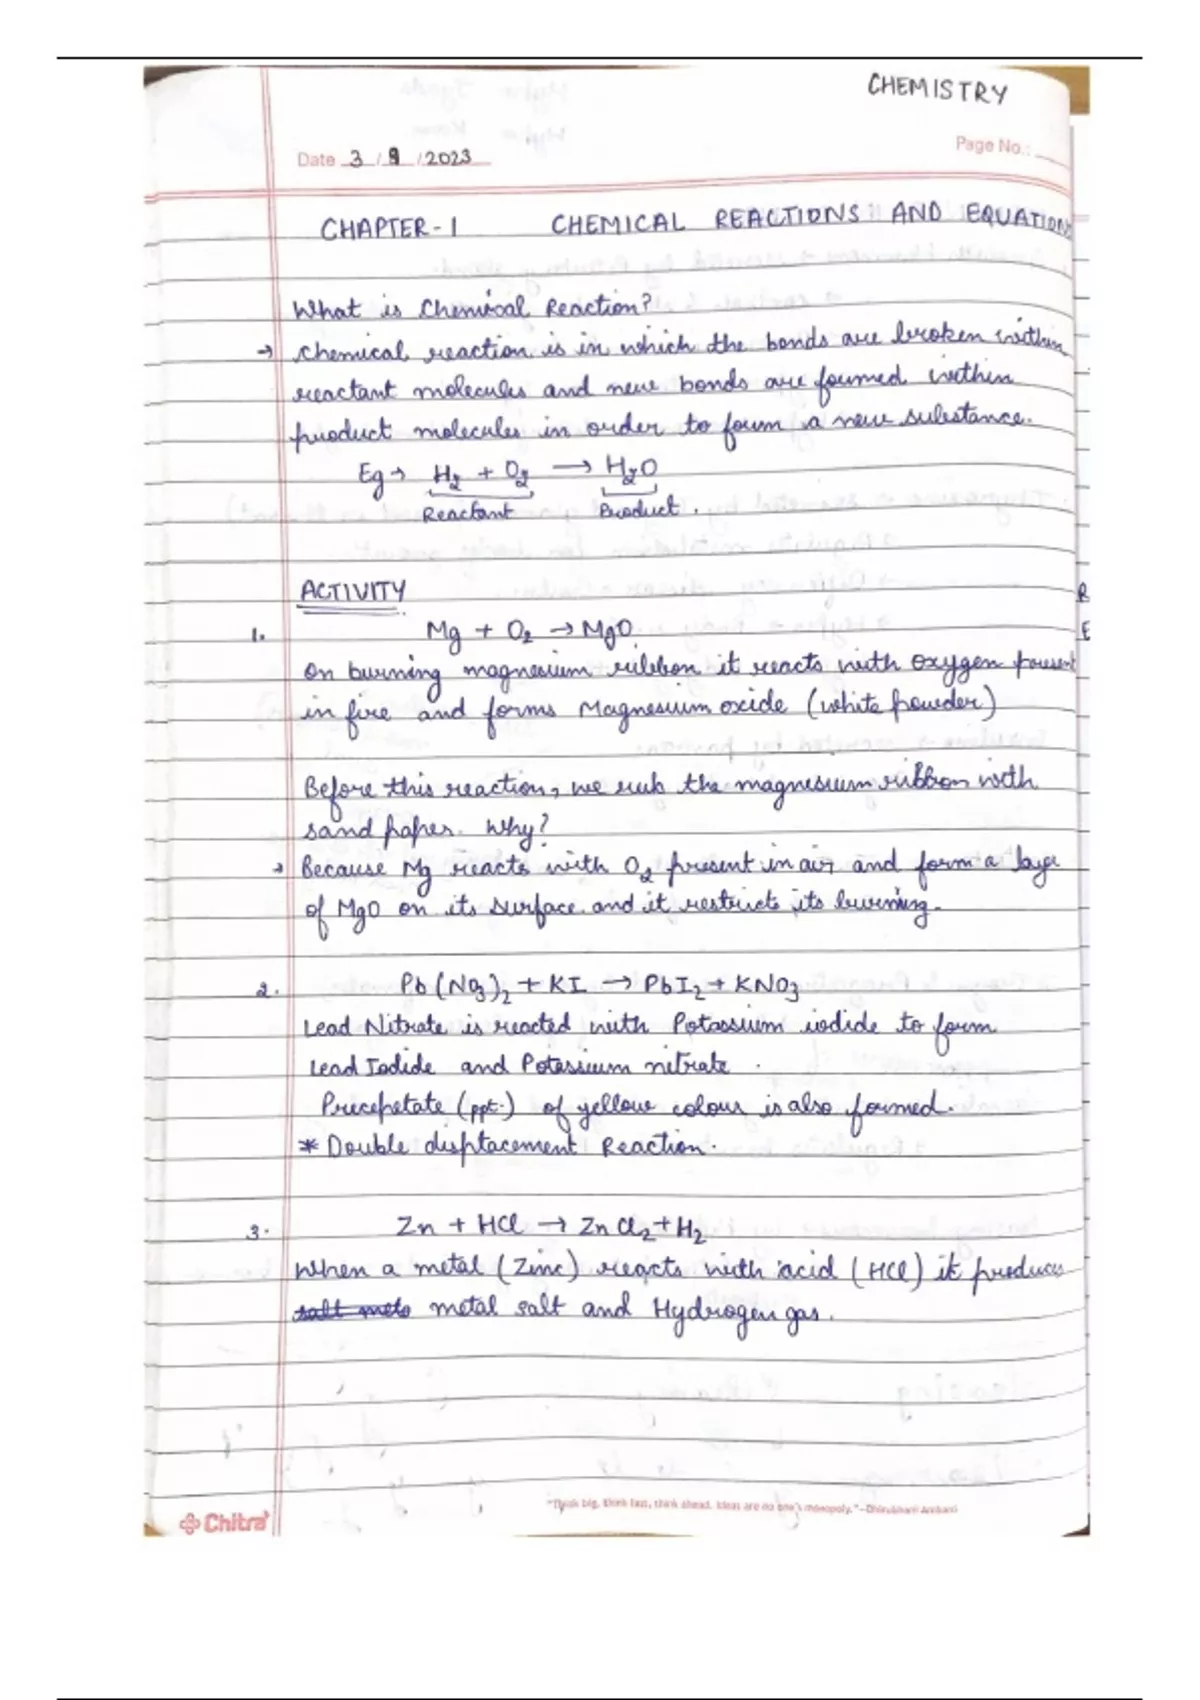 CHEMISTRY
Date 3 / 9 / 2023
Page No.:
CHAPTER-1 CHEMICAL REACTIONS AND EQUATIONS
What is Chemical Reaction?
→ Chemical reaction is in which the bonds are broken within
reactant molecules and new bonds are formed within
product molecules in order to form a new substance.
Eg → H2 + O2 → H2O
Reactant Product.
ACTIVITY
1. Mg + O2 → MgO
On burning magnesium ribbon it reacts with oxygen present
in fire and forms Magnesium oxide (white powder)
Before this reaction, we rub the magnesium ribbon with
sand paper. Why?
→ Because Mg reacts with O2 present in air and form a laye
of MgO on its surface and it restricts its burning.
2. Pb(NO3)2 + KI → PbI2 + KNO3
Lead Nitrate is reacted with Potassium iodide to form
Lead Iodide and Potassium nitrate.
Precepetate (ppt.) of yellow colour is also formed.
* Double displacement Reaction.
3. Zn + HCl → ZnCl2 + H2
When a metal (Zinc) reacts with acid (HCl) it produces
salt meta metal salt and Hydrogen gas.
Chitra
"Think big, think fast, think ahead. Ideas are no one's monopoly."–Dhirubhai Ambani